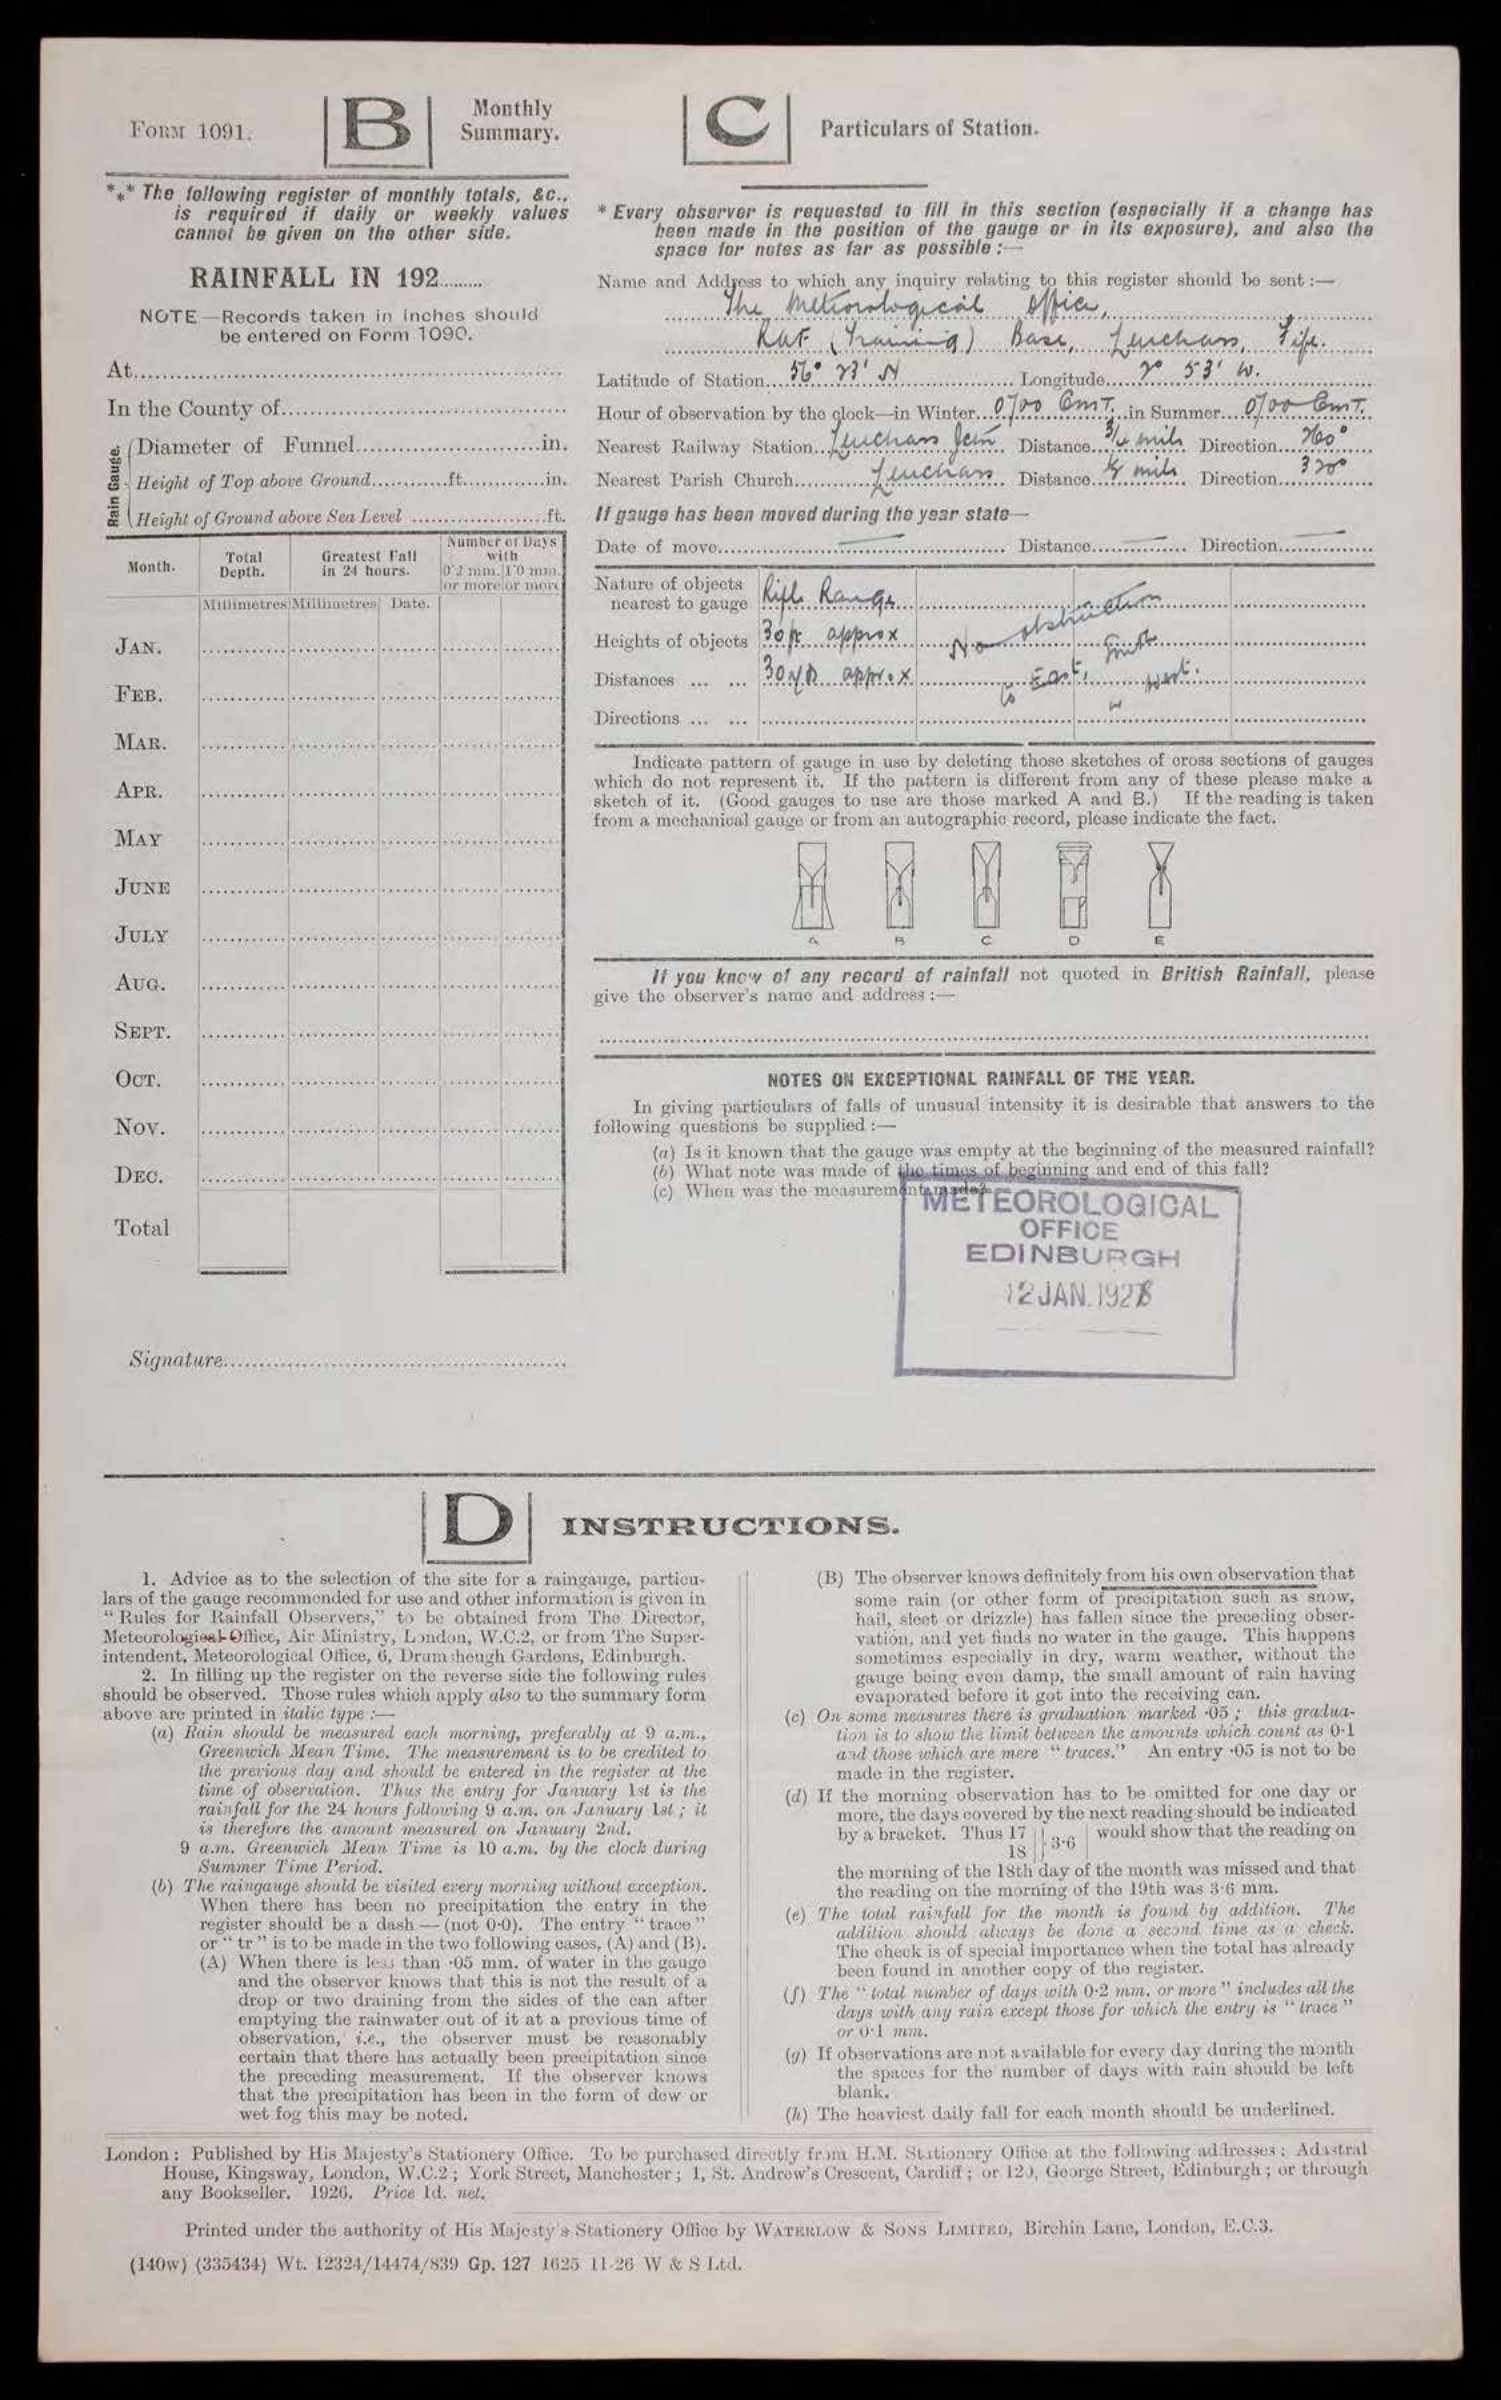 FORM 1091.
B
Monthly
Summary.
*⁎* The following register of monthly totals, &c.,
is required if daily or weekly values
cannot be given on the other side.
RAINFALL IN 192.........
NOTE—Records taken in inches should
be entered on Form 1090.
At
In the County of
Rain Gauge.
Diameter of Funnel in.
Height of Top above Ground ft. in.
Height of Ground above Sea Level ft.
Month. Total Depth. Greatest Fall in 24 hours. Number of Days with
0·2 mm. or more 1·0 mm. or more
Millimetres Millimetres Date.
JAN.
FEB.
MAR.
APR.
MAY
JUNE
JULY
AUG.
SEPT.
OCT.
NOV.
DEC.
Total
Signature
C
Particulars of Station.
* Every observer is requested to fill in this section (especially if a change has
been made in the position of the gauge or in its exposure), and also the
space for notes as far as possible :—
Name and Address to which any inquiry relating to this register should be sent :—
The Meteorological Office,
RAF (Training) Base, Leuchars, Fife.
Latitude of Station 56° 23' N Longitude 2° 53' W.
Hour of observation by the clock—in Winter 0700 GMT. in Summer 0700 GMT.
Nearest Railway Station Leuchars Jcn Distance 3/4 mile Direction 260°
Nearest Parish Church Leuchars Distance mile Direction 320°
If gauge has been moved during the year state—
Date of move — Distance — Direction —
Nature of objects
nearest to gauge Rifle Range
Heights of objects 30 ft approx No obstruction
Distances ... ... 30 yds approx to East, South
Directions ... ... West.
Indicate pattern of gauge in use by deleting those sketches of cross sections of gauges
which do not represent it. If the pattern is different from any of these please make a
sketch of it. (Good gauges to use are those marked A and B.) If the reading is taken
from a mechanical gauge or from an autographic record, please indicate the fact.
A B C D E
If you know of any record of rainfall not quoted in British Rainfall, please
give the observer's name and address :—
NOTES ON EXCEPTIONAL RAINFALL OF THE YEAR.
In giving particulars of falls of unusual intensity it is desirable that answers to the
following questions be supplied :—
(a) Is it known that the gauge was empty at the beginning of the measured rainfall?
(b) What note was made of the times of beginning and end of this fall?
(c) When was the measurement made?
METEOROLOGICAL
OFFICE
EDINBURGH
12 JAN. 1928
D
INSTRUCTIONS.
1. Advice as to the selection of the site for a raingauge, particu-
lars of the gauge recommended for use and other information is given in
“Rules for Rainfall Observers,” to be obtained from The Director,
Meteorological Office, Air Ministry, London, W.C.2, or from The Super-
intendent, Meteorological Office, 6, Drumsheugh Gardens, Edinburgh.
2. In filling up the register on the reverse side the following rules
should be observed. Those rules which apply also to the summary form
above are printed in italic type :—
(a) Rain should be measured each morning, preferably at 9 a.m.,
Greenwich Mean Time. The measurement is to be credited to
the previous day and should be entered in the register at the
time of observation. Thus the entry for January 1st is the
rainfall for the 24 hours following 9 a.m. on January 1st ; it
is therefore the amount measured on January 2nd.
9 a.m. Greenwich Mean Time is 10 a.m. by the clock during
Summer Time Period.
(b) The raingauge should be visited every morning without exception.
When there has been no precipitation the entry in the
register should be a dash — (not 0·0). The entry “ trace ”
or “ tr ” is to be made in the two following cases, (A) and (B).
(A) When there is less than ·05 mm. of water in the gauge
and the observer knows that this is not the result of a
drop or two draining from the sides of the can after
emptying the rainwater out of it at a previous time of
observation, i.e., the observer must be reasonably
certain that there has actually been precipitation since
the preceding measurement. If the observer knows
that the precipitation has been in the form of dew or
wet fog this may be noted.
(B) The observer knows definitely from his own observation that
some rain (or other form of precipitation such as snow,
hail, sleet or drizzle) has fallen since the preceding obser-
vation, and yet finds no water in the gauge. This happens
sometimes especially in dry, warm weather, without the
gauge being even damp, the small amount of rain having
evaporated before it got into the receiving can.
(c) On some measures there is graduation marked ·05 ; this gradua-
tion is to show the limit between the amounts which count as 0·1
and those which are mere “ traces.” An entry ·05 is not to be
made in the register.
(d) If the morning observation has to be omitted for one day or
more, the days covered by the next reading should be indicated
by a bracket. Thus 17 } 3·6 would show that the reading on
18
the morning of the 18th day of the month was missed and that
the reading on the morning of the 19th was 3·6 mm.
(e) The total rainfall for the month is found by addition. The
addition should always be done a second time as a check.
The check is of special importance when the total has already
been found in another copy of the register.
(f) The “ total number of days with 0·2 mm. or more ” includes all the
days with any rain except those for which the entry is “ trace ”
or 0·1 mm.
(g) If observations are not available for every day during the month
the spaces for the number of days with rain should be left
blank.
(h) The heaviest daily fall for each month should be underlined.
London : Published by His Majesty's Stationery Office. To be purchased directly from H.M. Stationery Office at the following addresses : Adastral
House, Kingsway, London, W.C.2 ; York Street, Manchester ; 1, St. Andrew's Crescent, Cardiff ; or 120, George Street, Edinburgh ; or through
any Bookseller. 1926. Price 1d. net.
Printed under the authority of His Majesty's Stationery Office by WATERLOW & SONS LIMITED, Birchin Lane, London, E.C.3.
(140w) (335434) Wt. 12324/14474/839 Gp. 127 1625 11-26 W & S Ltd.